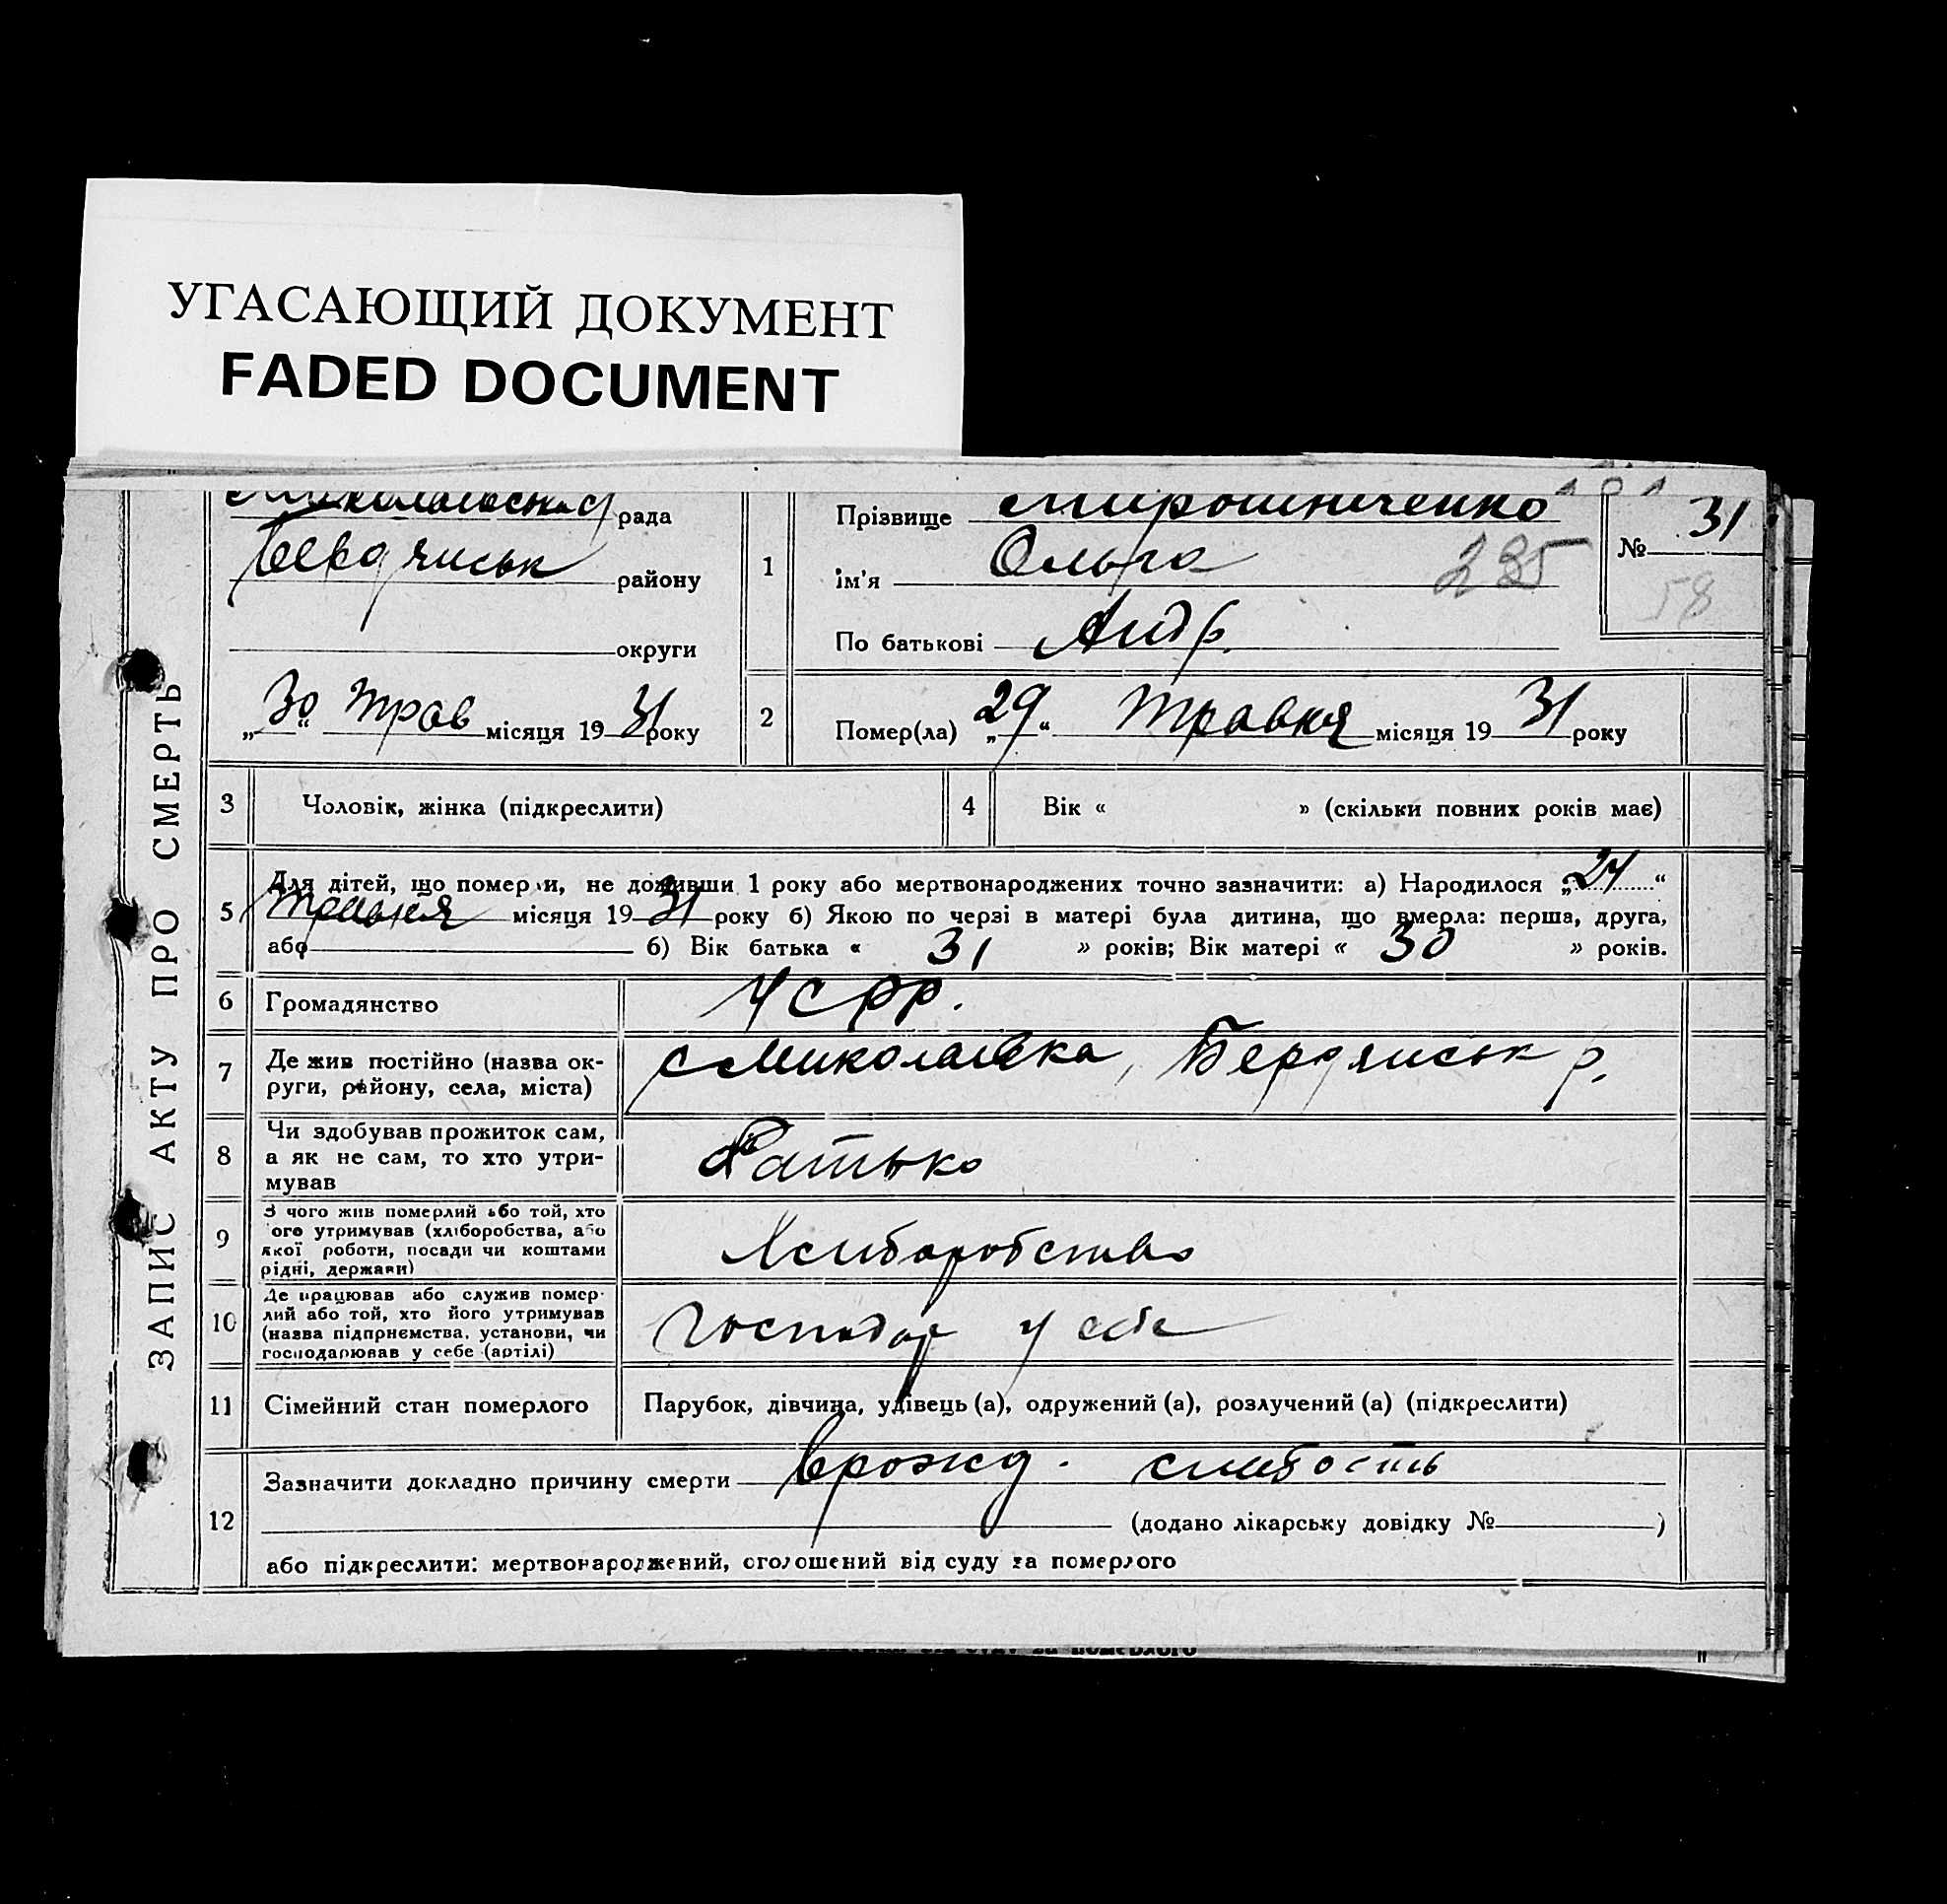 УГАСАЮЩИЙ ДОКУМЕНТ
FADED DOCUMENT
ЗАПИС АКТУ ПРО СМЕРТЬ
Миколаївська рада
Бердянськ району
округи
„30“ трав місяця 1931 року
1
Прізвище Мирошниченко
ім'я Ольга
235
По батькові Андр.
№ 31
58
2
Помер(ла) „29“ травня місяця 1931 року
3 Чоловік, жінка (підкреслити)
4 Вік « » (скільки повних років має)
5 Для дітей, що померли, не доживши 1 року або мертвонароджених точно зазначити: а) Народилося „24“
травня місяця 1931 року б) Якою по черзі в матері була дитина, що вмерла: перша, друга,
або б) Вік батька « 31 » років; Вік матері « 30 » років.
6 Громадянство УСРР.
7 Де жив постійно (назва ок-
руги, району, села, міста)
с Миколаївка, Бердянськ р.
8 Чи здобував прожиток сам,
а як не сам, то хто утри-
мував
Батько
9 З чого жив померлий або той, хто
його утримував (хліборобства, або
якої роботи, посади чи коштами
рідні, держави)
Хліборобство
10 Де працював або служив помер-
лий або той, хто його утримував
(назва підприємства, установи, чи
господарював у себе (артілі)
Господар у себе
11 Сімейний стан померлого
Парубок, дівчина, удівець (а), одружений (а), розлучений (а) (підкреслити)
12 Зазначити докладно причину смерти врожд. слабость
(додано лікарську довідку № )
або підкреслити: мертвонароджений, оголошений від суду за померлого